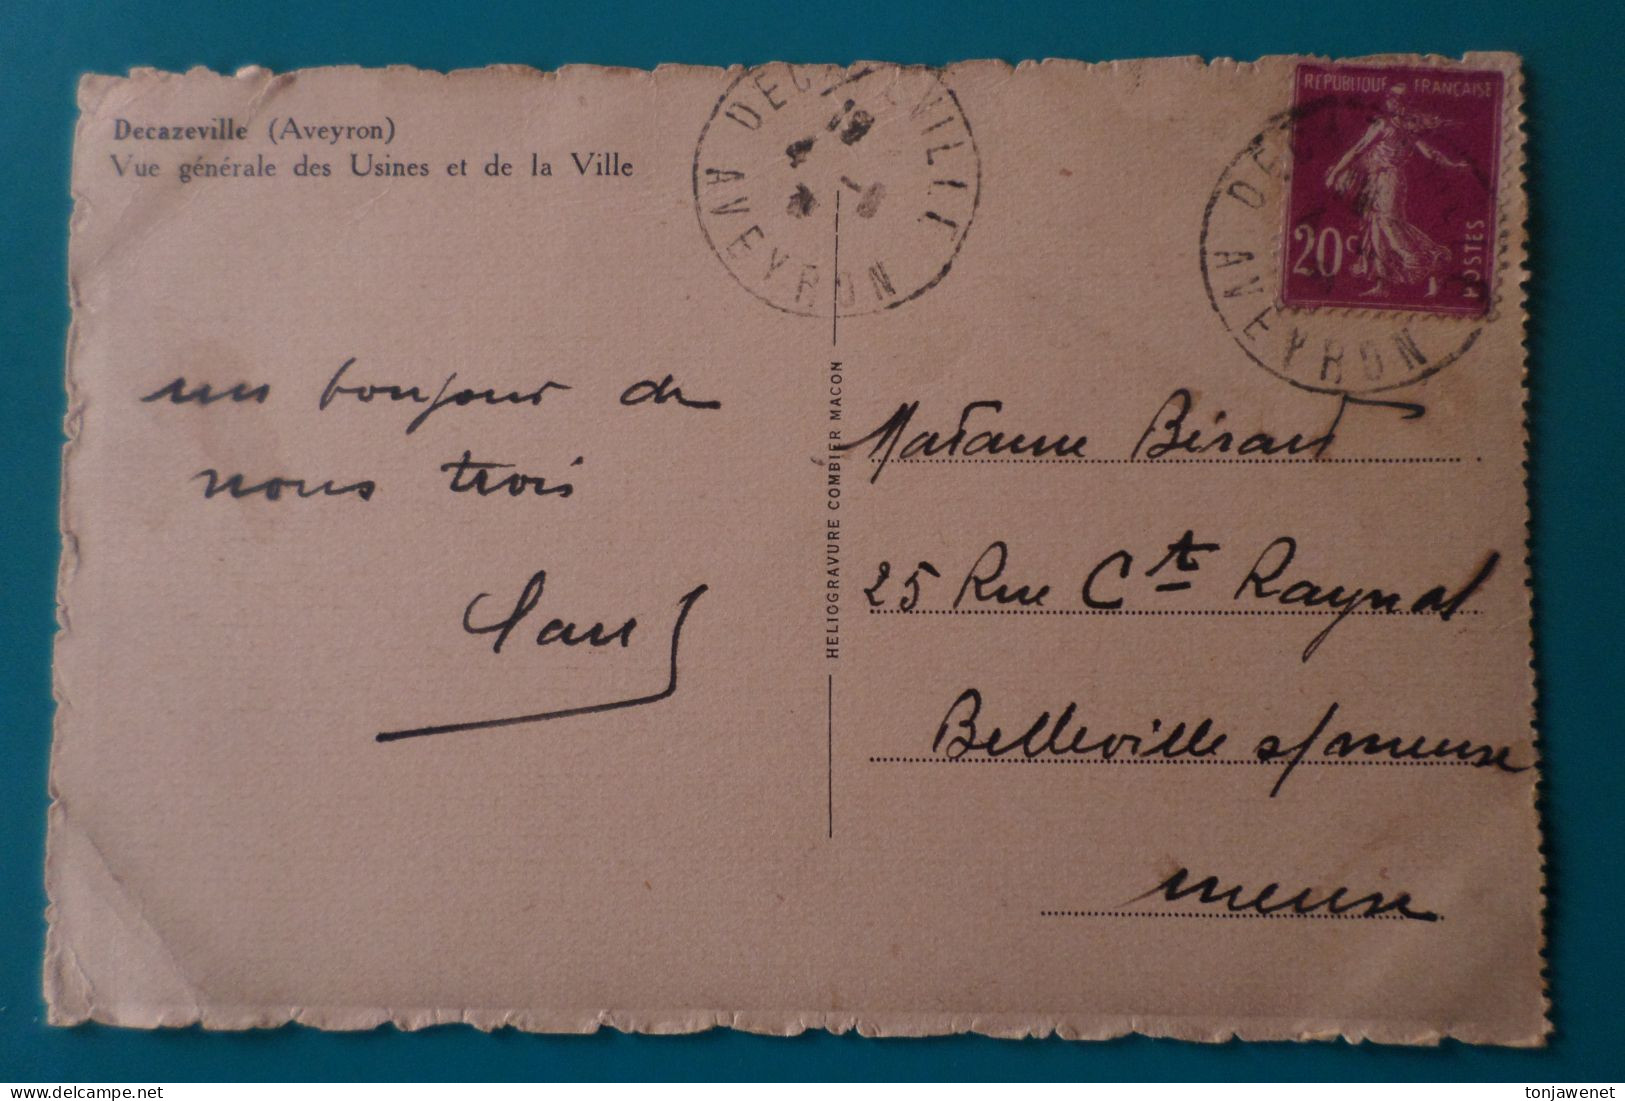 Decazeville (Aveyron)
Vue générale des Usines et de la Ville
AVEYRON
REPUBLIQUE FRANÇAISE
20c
POSTES
AVEYRON
un bonjour de
nous trois
HELIOGRAVURE COMBIER MACON
Madame Bérard
25 Rue Ct Raynal
Belleville s/meuse
meuse
delcampe.net
tonjawenet